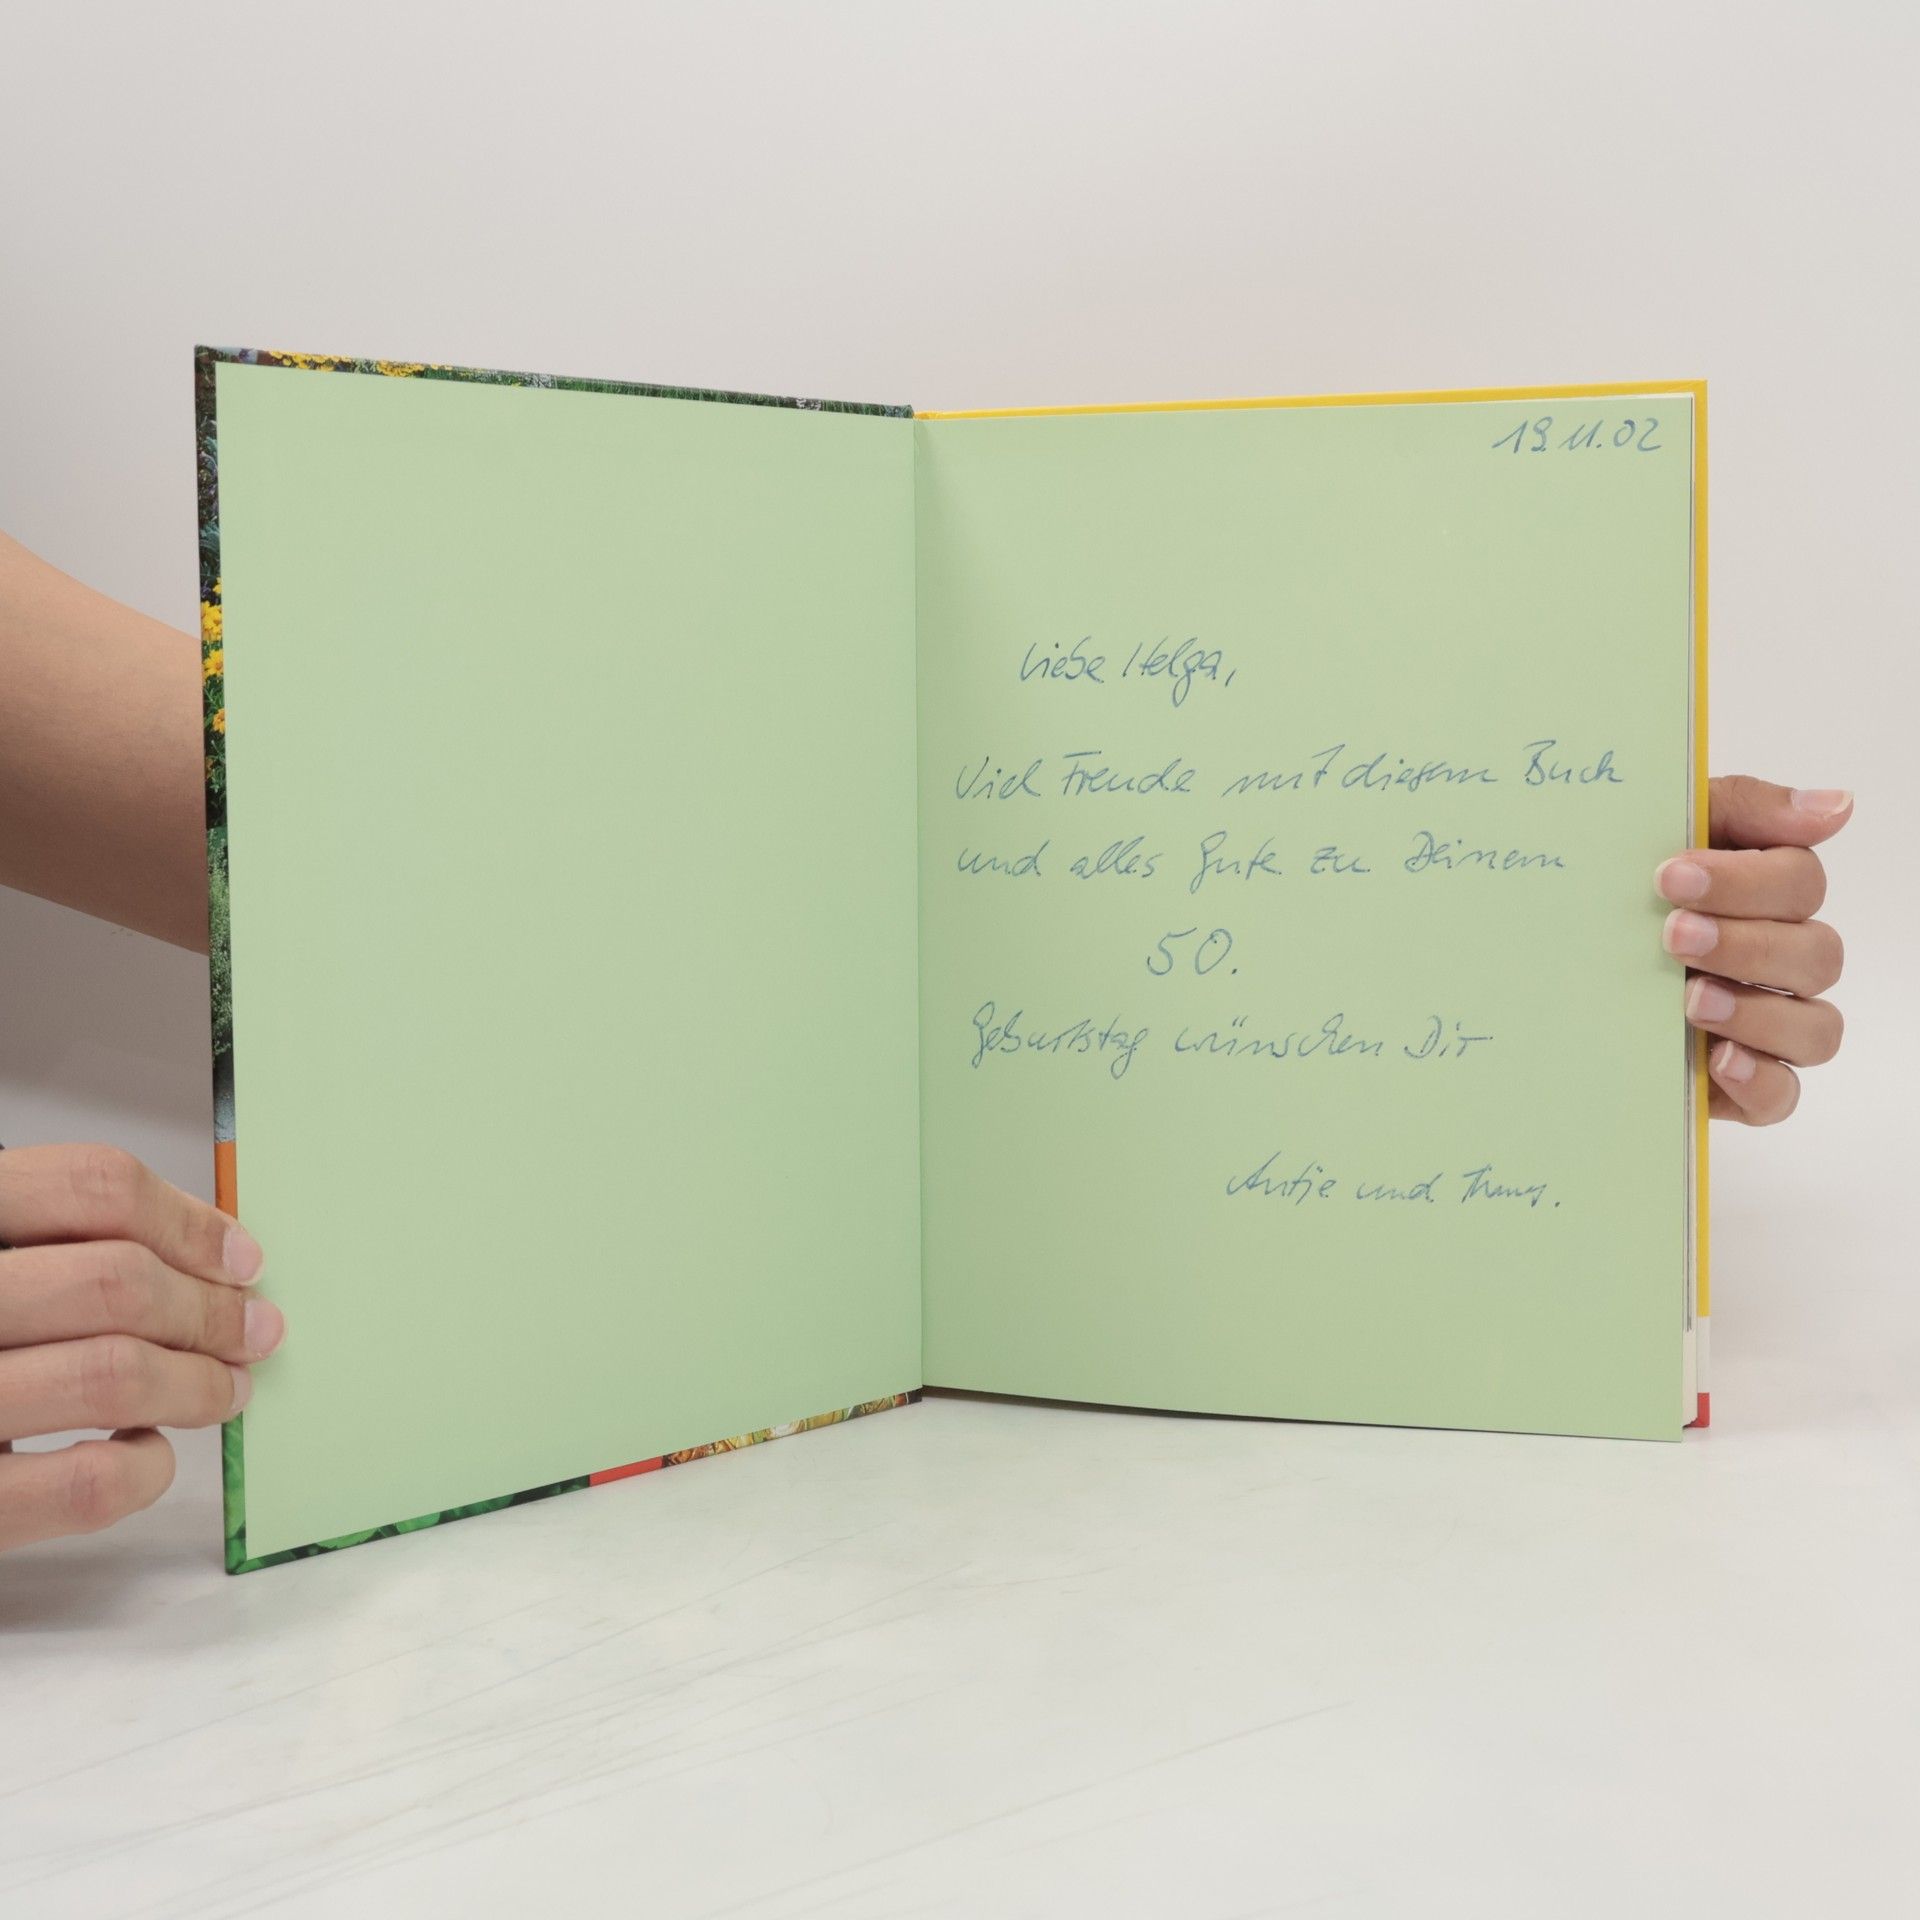 19.11.02
Liebe Helga,
Viel Freude mit diesem Buch
und alles Gute zu Deinem
50.
Geburtstag wünschen Dir
Antje und